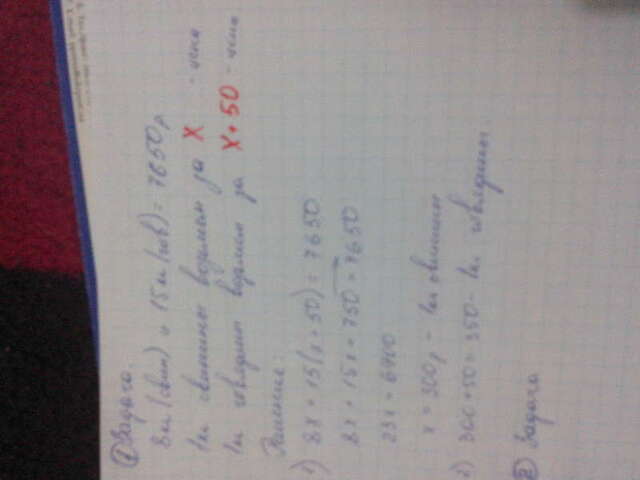 ① Задача.
8 кг (свин) и 15 кг (гов) = 7650 р
1 кг свинины возьмем за X - цена
1 кг говядины возьмем за X+50 - цена
Решение:
1) 8x + 15(x+50) = 7650
8x + 15x + 750 = 7650
23x = 6900
x = 300 р - 1 кг свинины
2) 300+50 = 350 - 1 кг говядины.
② Задача